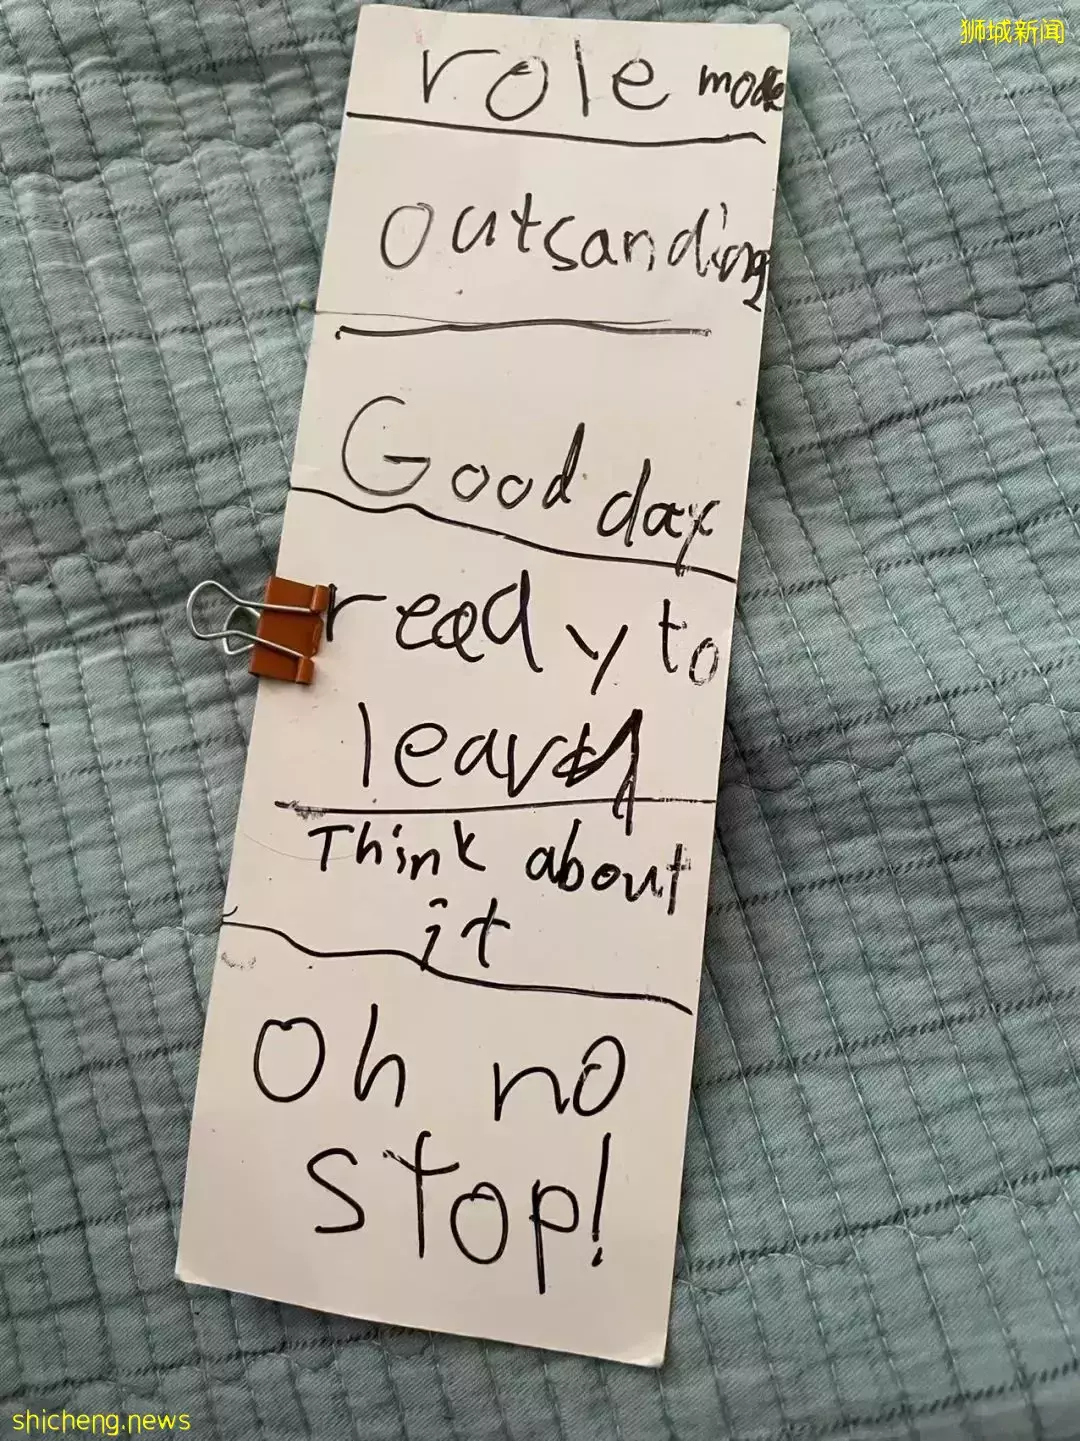 狮城新闻
role mode
outsanding
Good day
ready to
Think about
it
oh no
stop!
shicheng.news